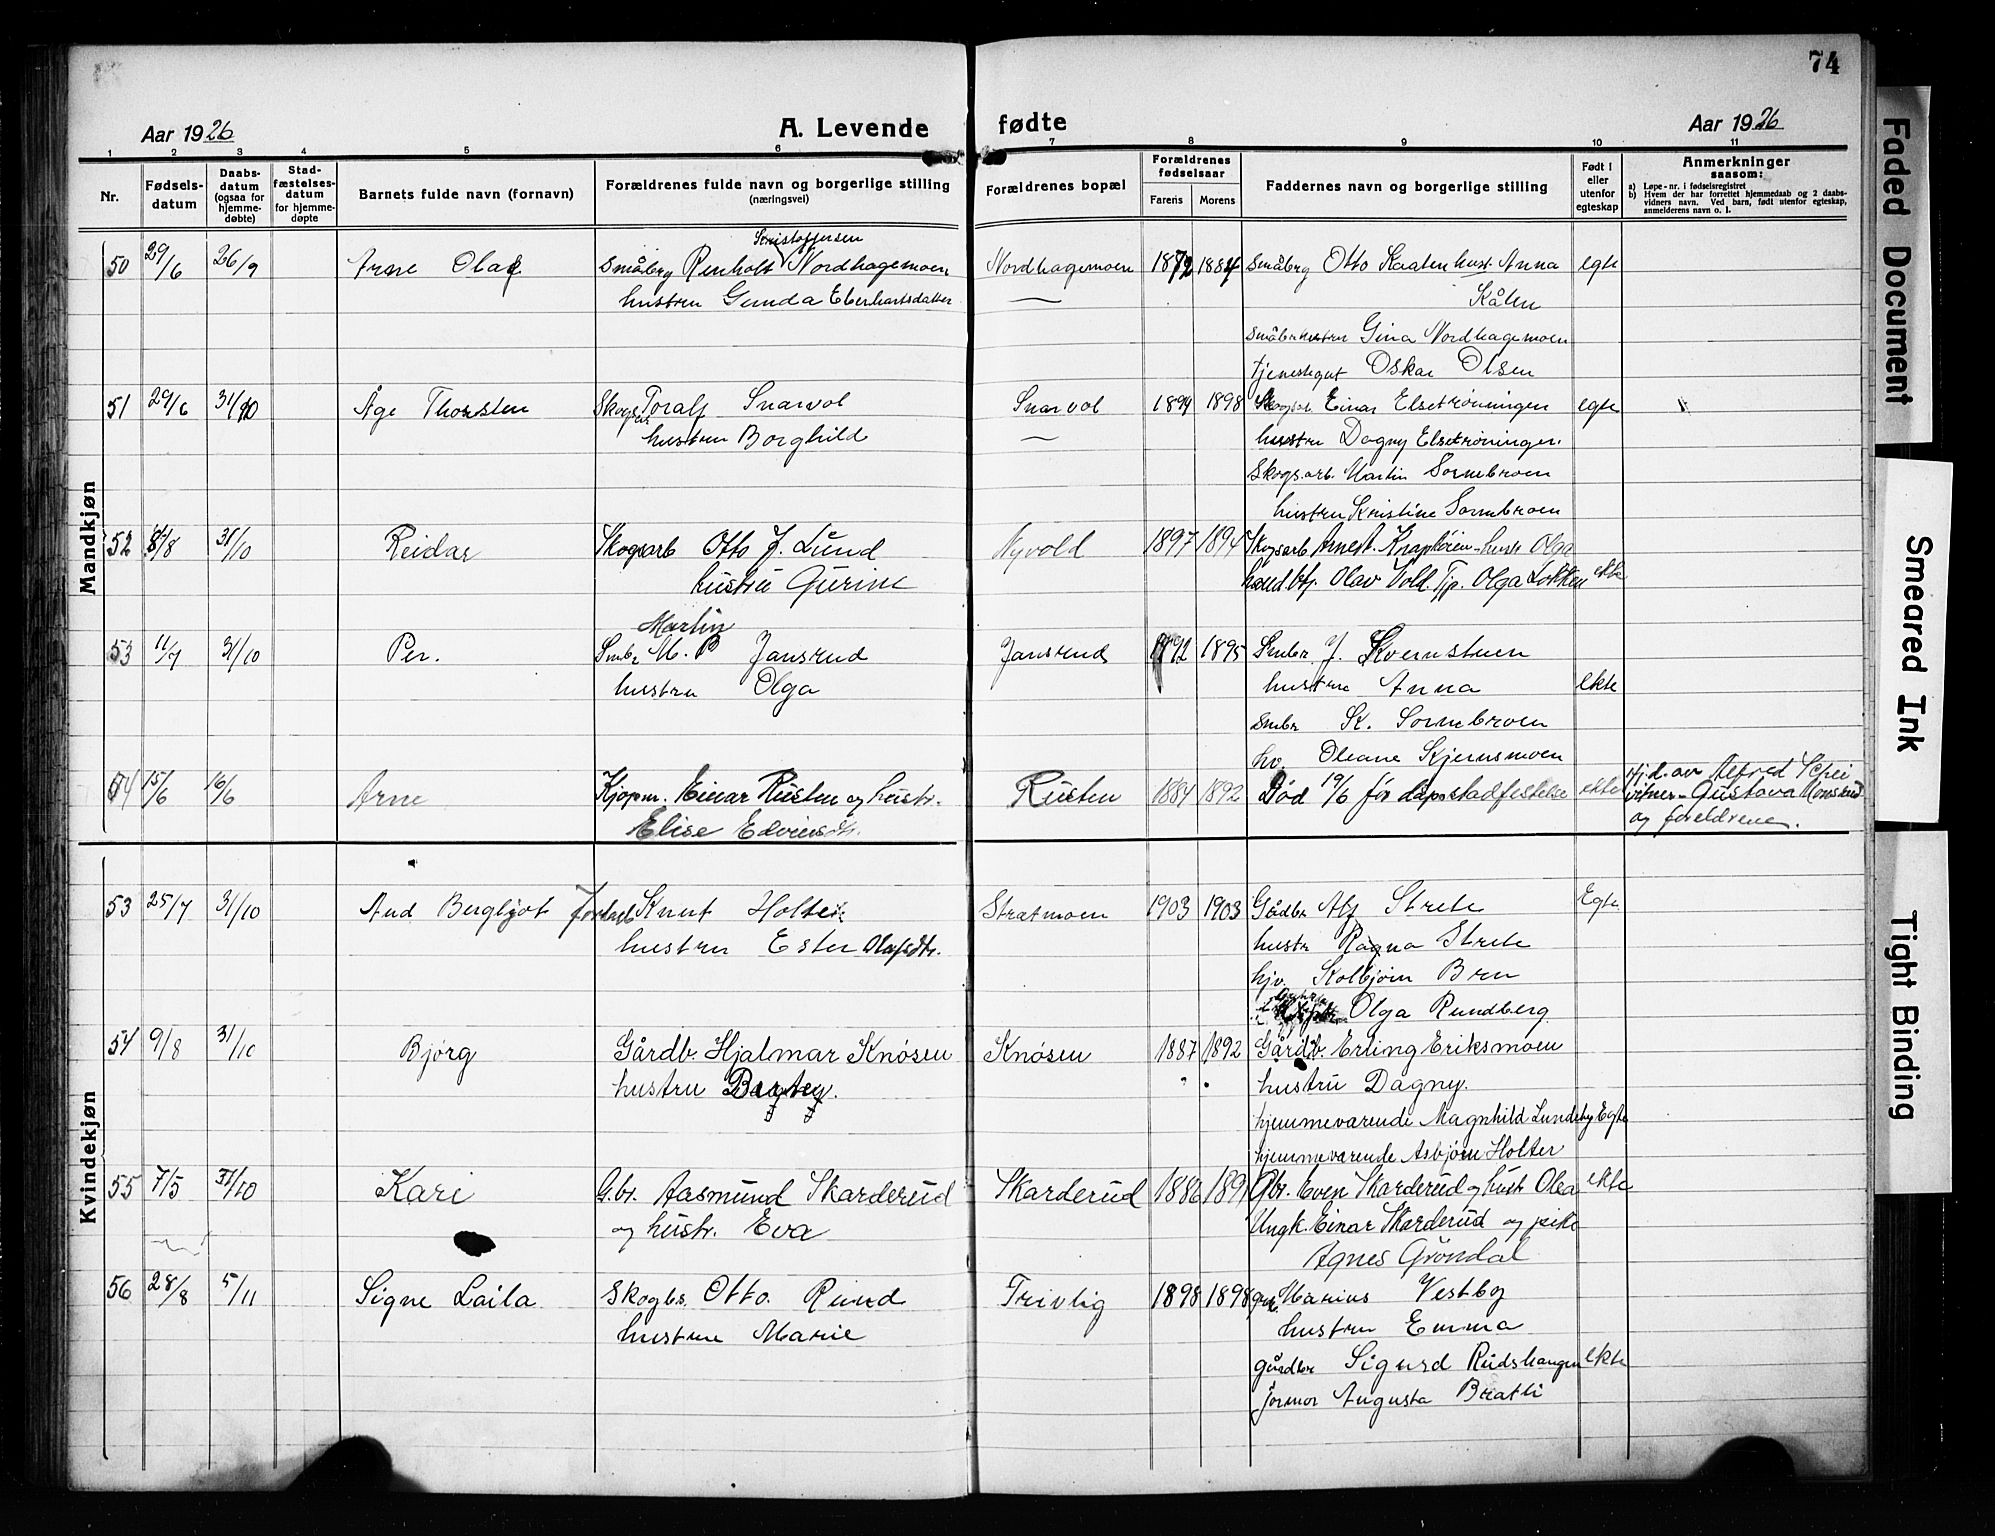 74
Aar 1926
A. Levende fødte
Aar 1926
1 2 3 4 5 6 7 8 9 10 11
Nr.
Fødsels-datum
Daabs-datum (ogsaa for hjemme-døbte)
Stad-fæstelses-datum for hjemme-døpte
Barnets fulde navn (fornavn)
Forældrenes fulde navn og borgerlige stilling (næringsvei)
Forældrenes bopæl
Forældrenes fødselsaar
Farens
Morens
Faddernes navn og borgerlige stilling
Født i eller utenfor egteskap
Anmerkninger saasom:
a) Løpe-nr. i fødselsregistret
b) Hvem der har forrettet hjemmedaab og 2 daabs-vidners navn. Ved barn, født utenfor egteskap, anmelderens navn o. l.
Mandkjøn
Kristoffersen
50 29/6 26/9 Arne Olaf Småbrg Renholt Nordhagemoen Nordhagemoen 1872 1884 Småbrg Otto Kaaten hust. Anna egte
hustru Gunda Eberhartsdatter — Kåten
Småbrhustru Gina Nordhagemoen
Tjenestegut Oskar Olsen
51 29/6 31/10 Åge Thorsten Skogsar Toralf Snarvol Snarvol 1894 1898 Skogsar. Einar Elsetrøningen egte
hustru Borghild — hustru Dagny Elsetrøningen.
Skogs.arb. Martin Sornebroen
hustru Kristine Sornebroen
52 8/8 31/10 Reidar Skogsarb Otto J. Lund Nyvold 1897 1894 Skogsarb Arnest. Knapløien - hustr Olga
hustru Gurine Olav Vold Tjp. Olga Løkken ekte
Martin
53 11/7 31/10 Per. Smbr M. P Jansrud Jansrud 1892 1895 Smbr. J. Kvernstuen
hustru Olga hustru Anna ekte
smbr K. Sornebroen
hv. Oleane Kjernsmoen
54 15/6 16/6 Arne Kjøpm. Einar Rusten og hustr. Rusten 1884 1892 Død 19/6 før dåpsstadfestelse ekte Hj.d. av Alfred
Elise Edvinsdtr. vitner - Gustava
og foreldrene.
Kvindekjøn
53 25/7 31/10 Aud Bergljot Knut Holter Stratmoen 1903 1903 Gådbr Alf Strete Egte
hustru Ester Olafsdtr. hustr Ragna Strete
hjv. Kolbjørn Bru
Olga Rundberg
54 9/8 31/10 Bjørg Gårdb. Hjalmar Knösen Knösen 1887 1892 Gårdb. Erling Eriksmoen
hustru " " hustru Dagny.
hjemmevarende Magnhild Lundeby Egte
hjemmevarende Asbjørn Holter
55 7/5 31/10 Kari G.br. Aasmund Skarderud Skarderud 1886 Gbr. Even Skarderud og hust Olea ekte
og hustr. Eva Ungk. Einar Skarderud og pike
Agnes Gröndal
56 28/8 5/11 Signe Laila Skogbs. Otto. Rund Trivlig 1898 1898 Marius Vestby
hustru Marie hustru Emma
gårdbr Sigurd Rudshaugen ekte
Jormor Augusta Bratli
Faded Document
Smeared Ink
Tight Binding